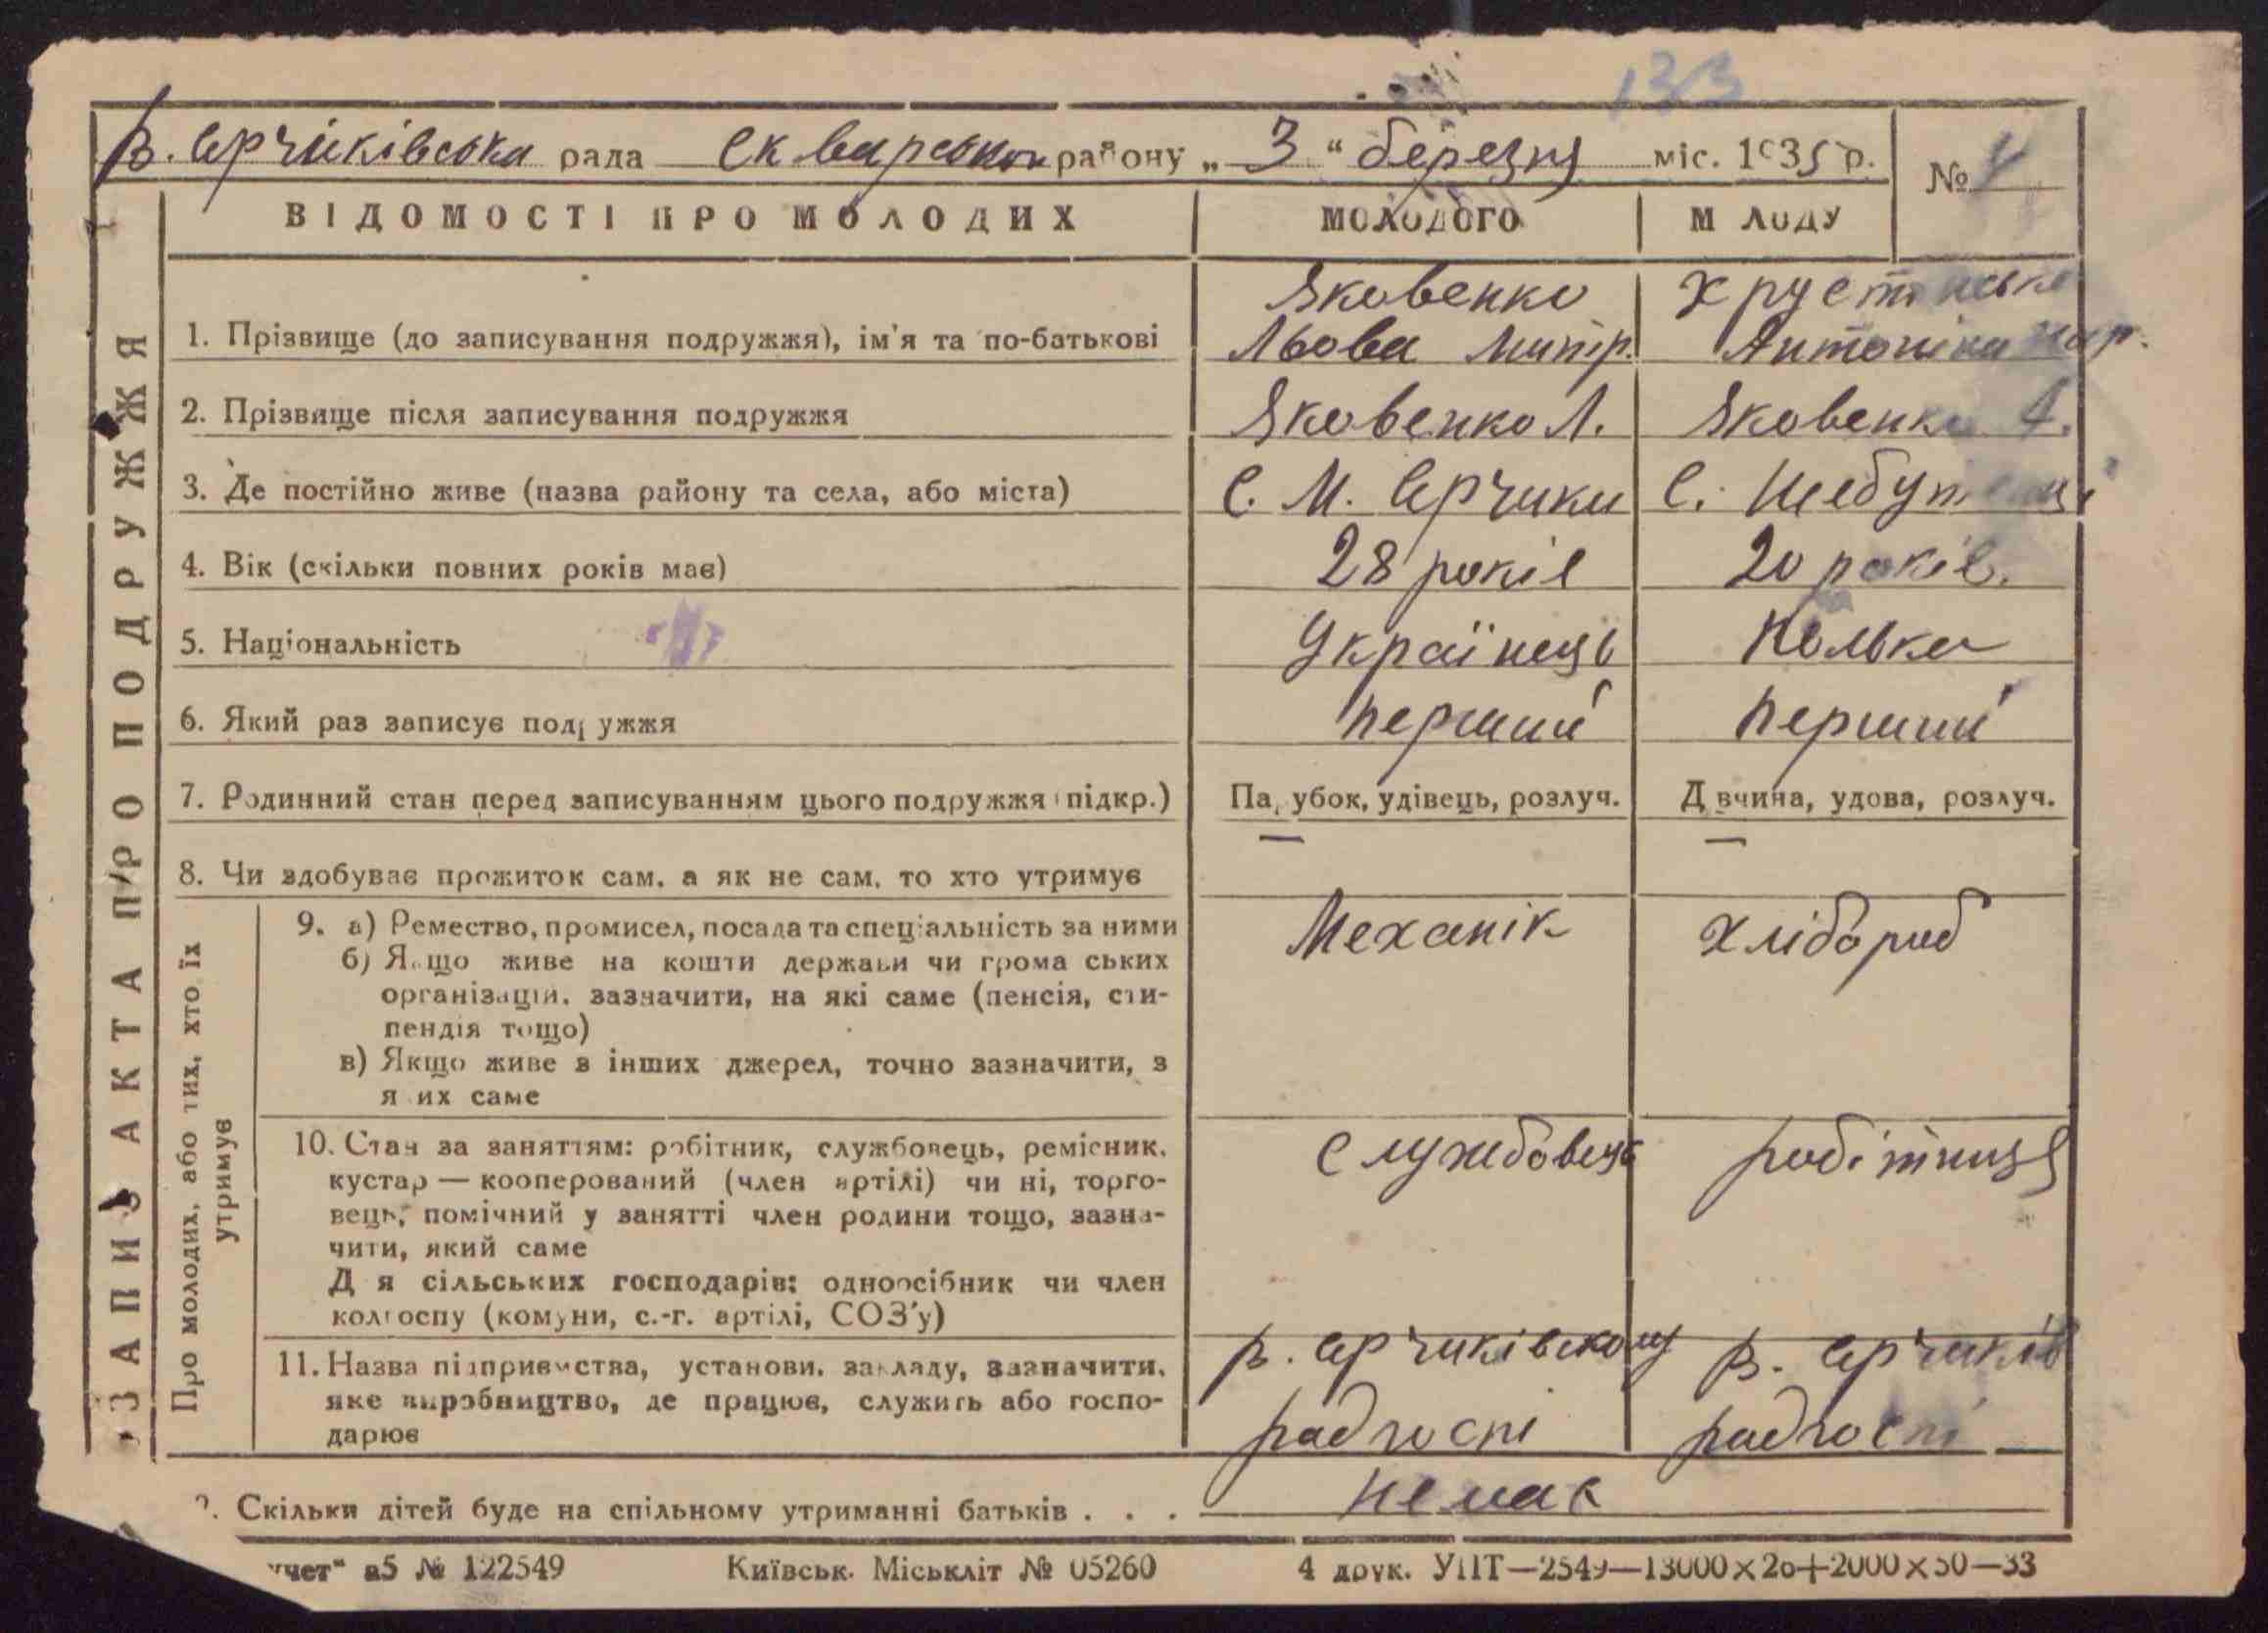 133
В. Єрчиківська рада Сквирського району „ 3 " березня міс. 1935 р. № 4
ВІДОМОСТІ ПРО МОЛОДИХ МОЛОДОГО М ЛОДУ
ЗАПИС АКТА ПРО ПОДРУЖЖЯ
Яковенко Хрустинська
1. Прізвище (до записування подружжя), ім'я та по-батькові Льова Митр. Антоніна
2. Прізвище після записування подружжя Яковенко Л. Яковенко А.
3. Де постійно живе (назва району та села, або міста) С. М. Єрчики С.
4. Вік (скільки повних років має) 28 років 20 років.
5. Національність Українець Полька
6. Який раз записує под ужжя перший перший
7. Родинний стан перед записуванням цього подружжя (підкр.) Па убок, удівець, розлуч. Д вчина, удова, розлуч.
8. Чи здобуває прожиток сам, а як не сам, то хто утримує
Про молодих, або тих, хто їх
утримує
9. а) Ремество, промисел, посада та спеціальність за ними Механік хлібороб
б) Якщо живе на кошти держави чи грома ських
організацій, зазначити, на які саме (пенсія, сти-
пендія тощо)
в) Якщо живе з інших джерел, точно зазначити, з
я их саме
10. Стан за заняттям: робітник, службовець, ремісник, службовець робітниця
кустар — кооперований (член артілі) чи ні, торго-
вець, помічний у занятті член родини тощо, зазна-
чити, який саме
Д я сільських господарів: одноосібник чи член
колгоспу (комуни, с.-г. артілі, СОЗ'у)
11. Назва підприємства, установи, закладу, зазначити, В. Єрчиківскому В. Єрчиків
яке виробництво, де працює, служить або госпо- радгоспі радгоспі
дарює
. Скільки дітей буде на спільному утриманні батьків . . . немає
учет" а5 № 122549 Київськ. Міськліт № 05260 4 друк. УПТ—2549—13000×20+2000×50—33